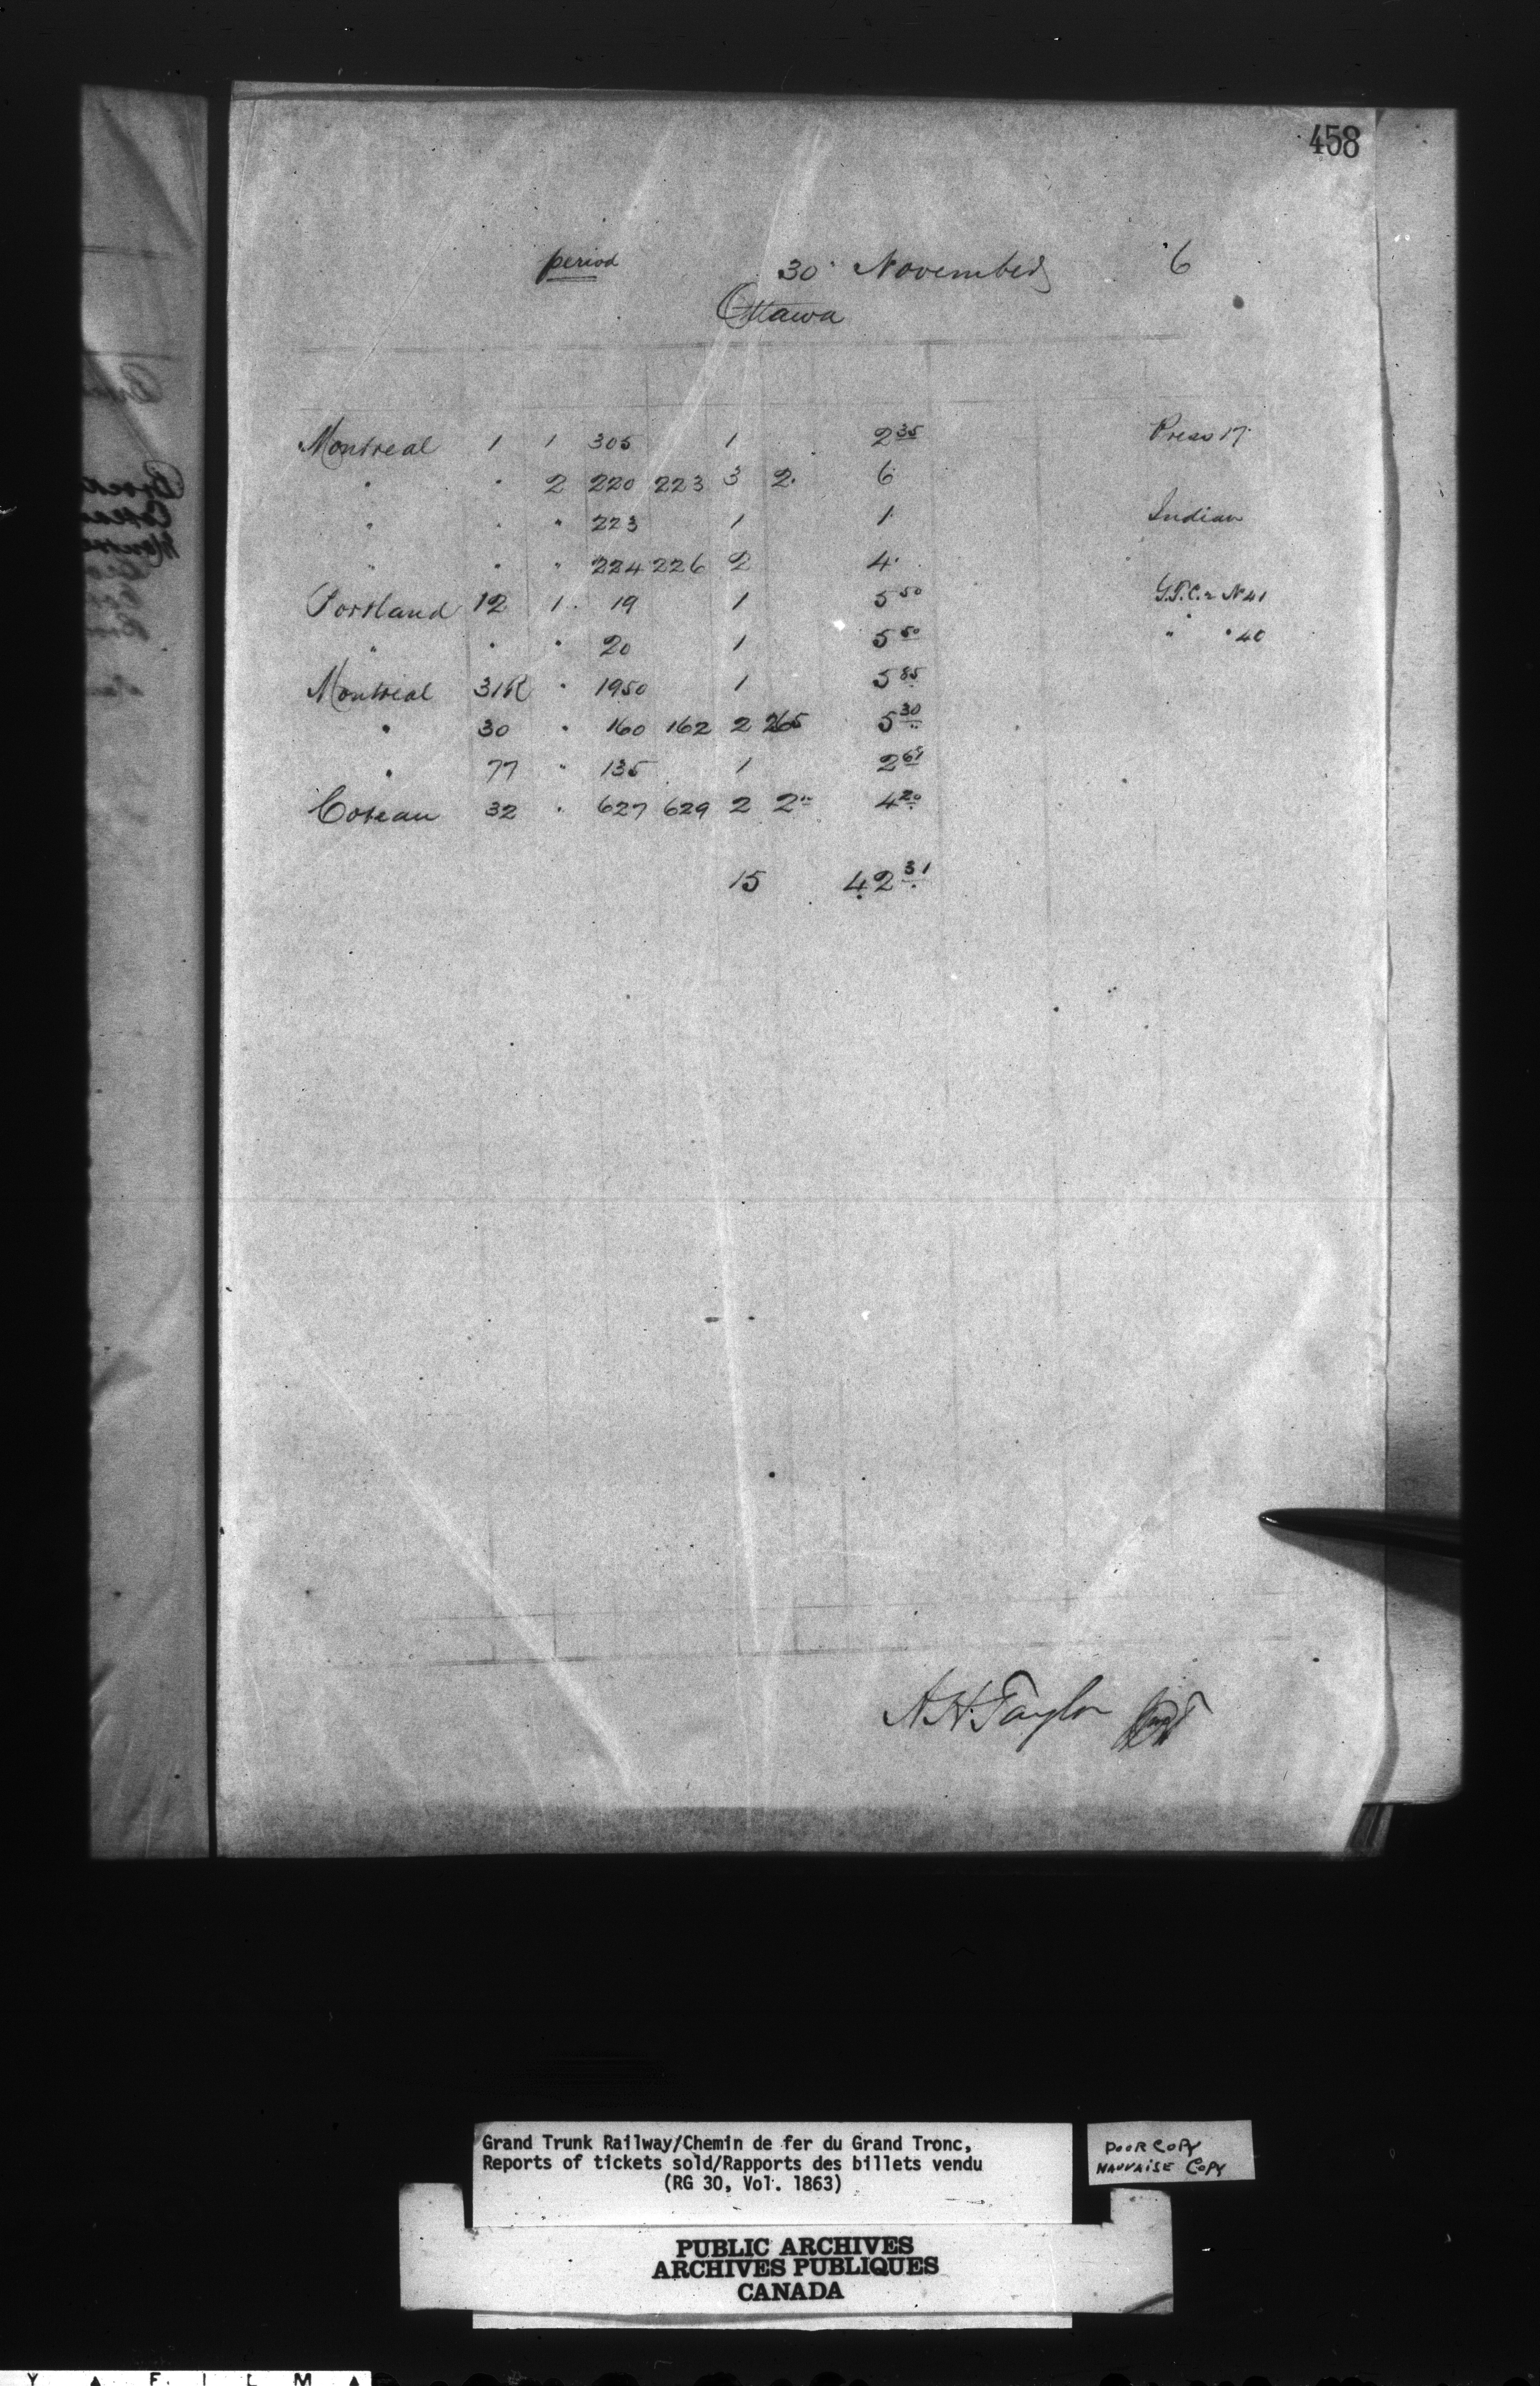 458
period 30 November 6
Ottawa
Montreal 1 1 305 1 2 35 Press 17
" " 2 220 223 3 2. 6
" " " 223 1 1 Indian
" " " 224 226 2 4
Portland 12 1 19 1 5 50 No 41
" " " 20 1 5 50 " " 40
Montreal 31R " 1950 1 5 85
" 30 " 160 162 2 265 5 30
" 77 " 135 1 2 61
Coteau 32 " 627 629 2 2 10 4 20
15 42 31
A H Taylor
Grand Trunk Railway/Chemin de fer du Grand Tronc,
Reports of tickets sold/Rapports des billets vendu
(RG 30, Vol. 1863)
POOR COPY
MAUVAISE COPY
PUBLIC ARCHIVES
ARCHIVES PUBLIQUES
CANADA
Y ▲ F I L M ▲